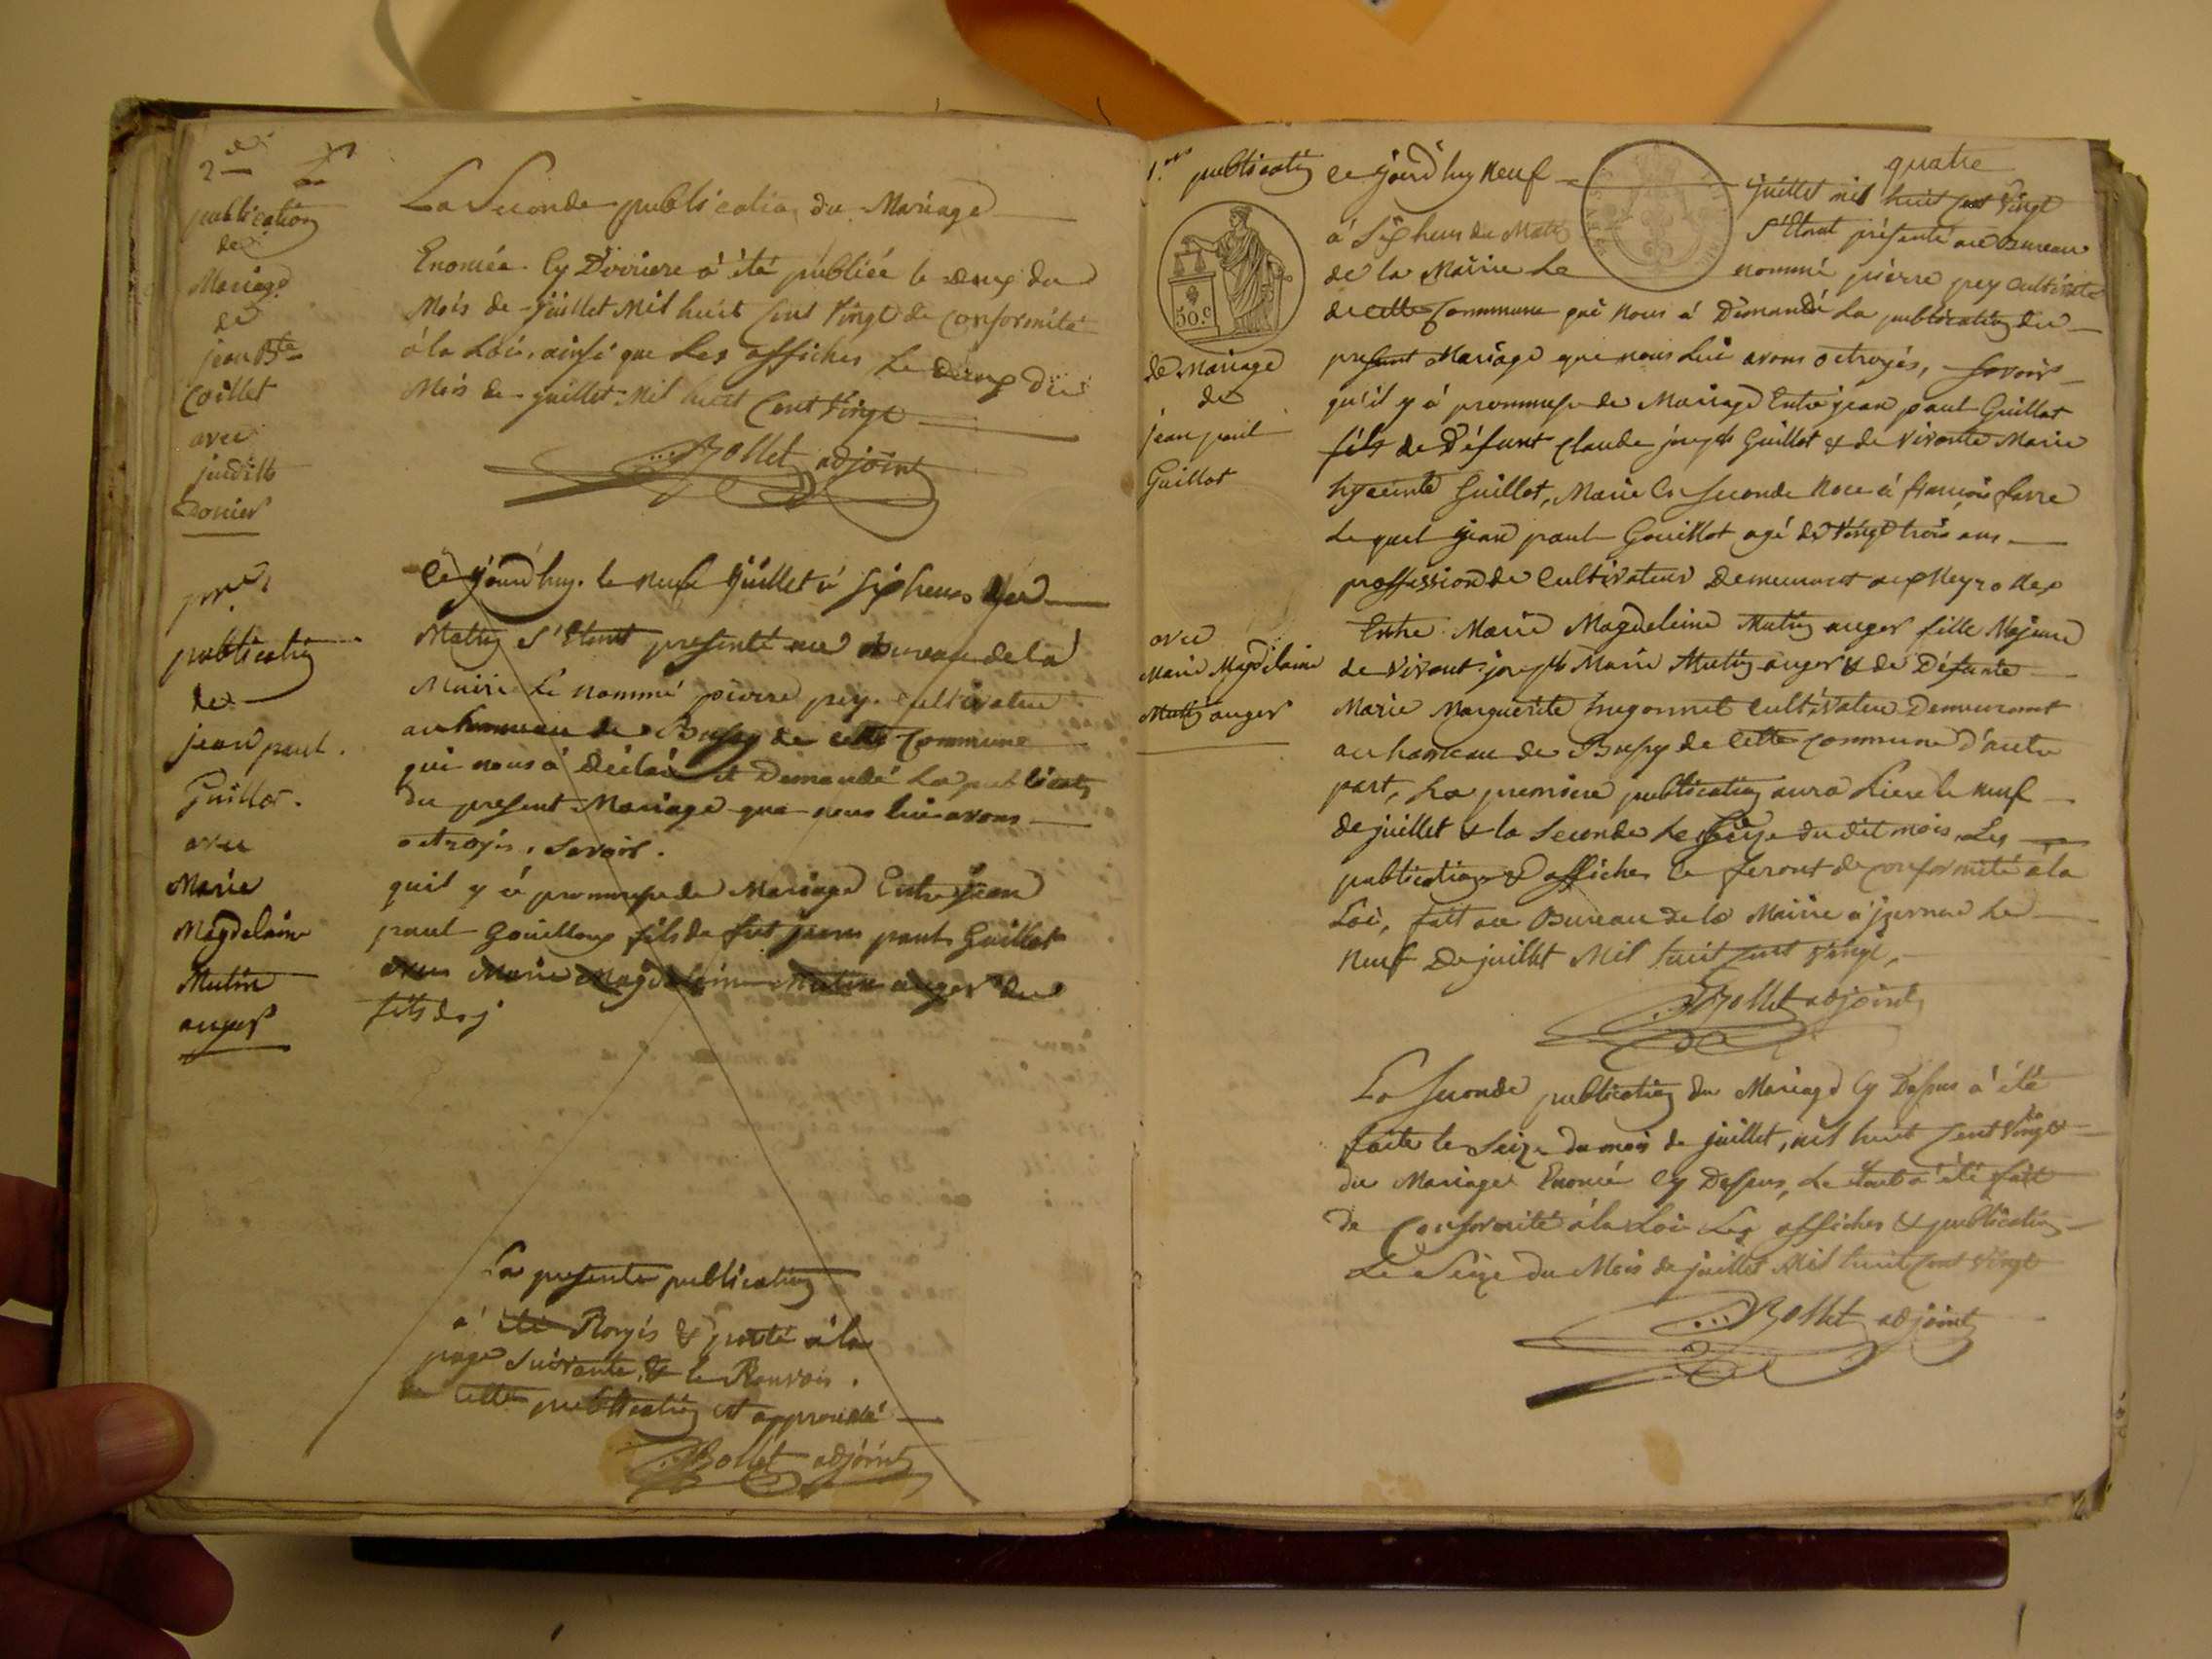 2de
publication
de
Mariage
de
jean Bte
Coillet
avec
judith
Donier
La Seconde publication du Mariage
Enoncée Cy Dérriere à été publiée le deux du
Mois de juillet Mil huit Cent Vingt de Conformité
à la Loi, ainsi que Les affiches Le deux du
Mois de juillet Mil huit Cent Vingt
Bollet adjoint
pre
publication
de
jean paul
Guillot.
avec
Marie
Magdelaine
Mutin
auger
Ce jourd'huy le neuf juillet à Six heures du
Matin S'Etant presenté au Bureau de la
Mairie Le nommé pierre pey cultivateur
au hameau de Bussy de cette Commune
qui nous à Déclaré et Demandé La publication
du present Mariage que nous lui avons
octroyés, Savoir.
quil y à prommesse de Mariage Entre Jean
paul Gouilloux fils de fut jean paul Guillot
avec Marie Magdelaine Mutin auger du
fils de j
La presente publication
a été Royés & porté à la
page Suivante, & le Renvois
de Cette publication est approuvé
Bollet adjoint
quatre
1ere publication
50.c
de Mariage
de
jean paul
Guillot
avec
Marie Magdelaine
Mutin auger
Ce jourd'huy Neuf juillet mil huit Cent Vingt
à Six heures du Matin S'Etant présenté au Bureau
de la Mairie Le nommé pierre pey Cultivateur
de cette Commmune qui Nous à Démandé La publication du
present Mariage que nous Lui avons octroyés, Savoir
qu'il y à prommesse de Mariage Entre jean paul Guillot
fils de Défunt Claude joseph Guillot & de vivante Marie
hyacinte Guillot, Marie En Seconde Noce à françois favre
Le quel jean paul Gouillot agé de Vingt trois ans
proffession de Cultivateur Demeurant
Entre Marie Magdeleine Mutin auger fille Majeure
de vivant joseph Marie Mutin auger & de Défunte
Marie Marguerite hugonnet Cultivateur Demeurant
au hameau de Bussy de Cette Commune d'autre
part, La premiere publication aura Lieu le neuf
de juillet & la Seconde Le Seize du dit mois, Les
publications & affiches Ce feront de Conformité à la
Loi, fait au Bureau de la Mairie à jzernore Le
Neuf De juillet Mil huit Cent Vingt,
Bollet adjoint
La Seconde publication du Mariage Cy Dessus à été
faite le Seize du mois de juillet, mil huit Cent Vingt
du Mariage Enoncé Cy Dessus, Le tout à été fait
de Conformité à la Loi Les affiches & publication
Le Seize du Mois de juillet Mil huit Cent Vingt
Bollet adjoint